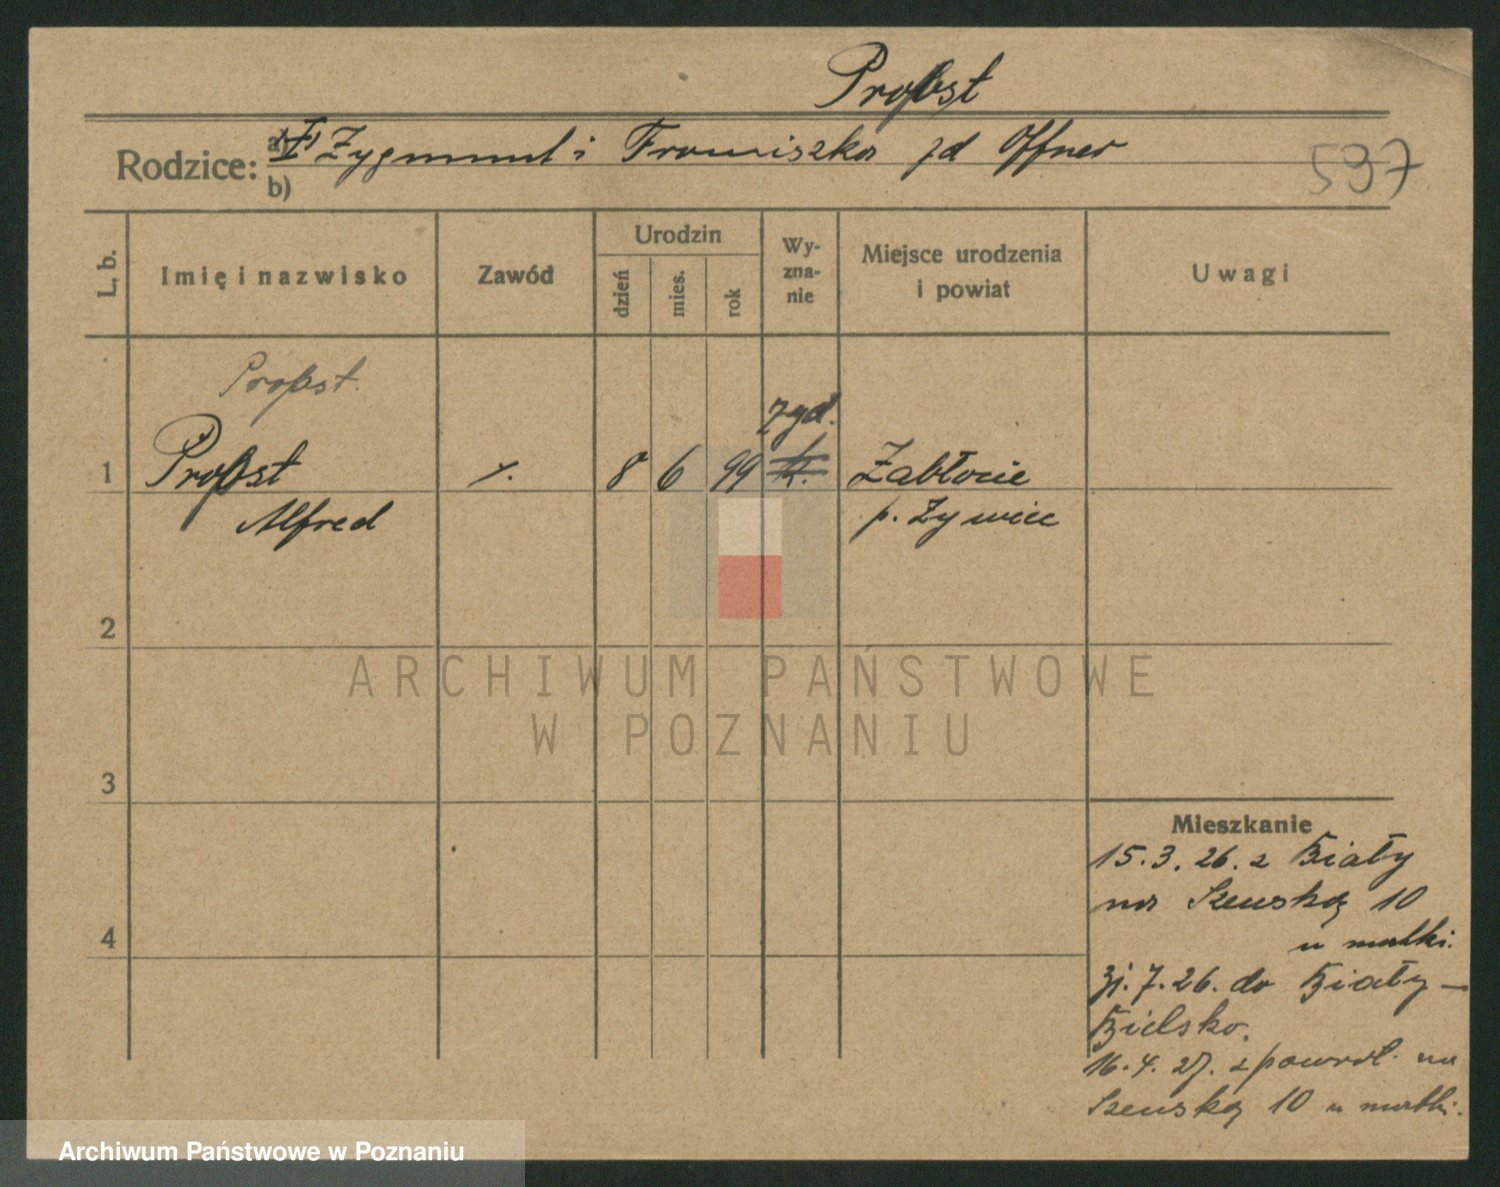 Probst
Rodzice: a) Zygmunt i Franciszka zd Offner
b)
597
L. b.
Imię i nazwisko
Zawód
Urodzin
dzień
mies.
rok
Wy-
zna-
nie
Miejsce urodzenia
i powiat
Uwagi
Probst.
zyd.
1 Probst 8 6 99 Zabłocie
Alfred p. Żywiec
2
ARCHIWUM PAŃSTWOWE
W POZNANIU
3
Mieszkanie
15.3.26. z Biały
na Szewską 10
u matki.
4
31.7.26. do Biały -
Bielsko.
16.4.27. z powrot. na
Szewską 10 u matki.
Archiwum Państwowe w Poznaniu